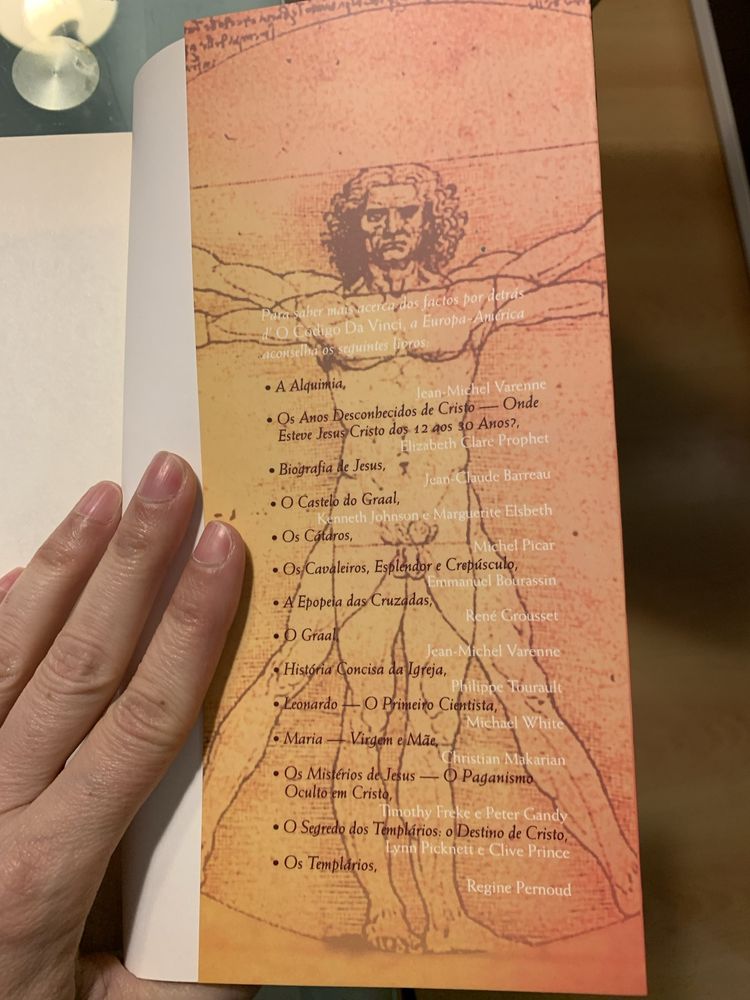 Para saber mais acerca dos factos por detrás
d' O Código Da Vinci, a Europa-América
aconselha os seguintes livros:
• A Alquimia,
Jean-Michel Varenne
• Os Anos Desconhecidos de Cristo — Onde
Esteve Jesus Cristo dos 12 aos 30 Anos?,
Elizabeth Clare Prophet
• Biografia de Jesus,
Jean-Claude Barreau
• O Castelo do Graal,
Kenneth Johnson e Marguerite Elsbeth
• Os Cátaros,
Michel Picar
• Os Cavaleiros, Esplendor e Crepúsculo,
Emmanuel Bourassin
• A Epopeia das Cruzadas,
René Grousset
• O Graal,
Jean-Michel Varenne
• História Concisa da Igreja,
Philippe Tourault
• Leonardo — O Primeiro Cientista,
Michael White
• Maria — Virgem e Mãe,
Christian Makarian
• Os Mistérios de Jesus — O Paganismo
Oculto em Cristo,
Timothy Freke e Peter Gandy
• O Segredo dos Templários: o Destino de Cristo,
Lynn Picknett e Clive Prince
• Os Templários,
Regine Pernoud